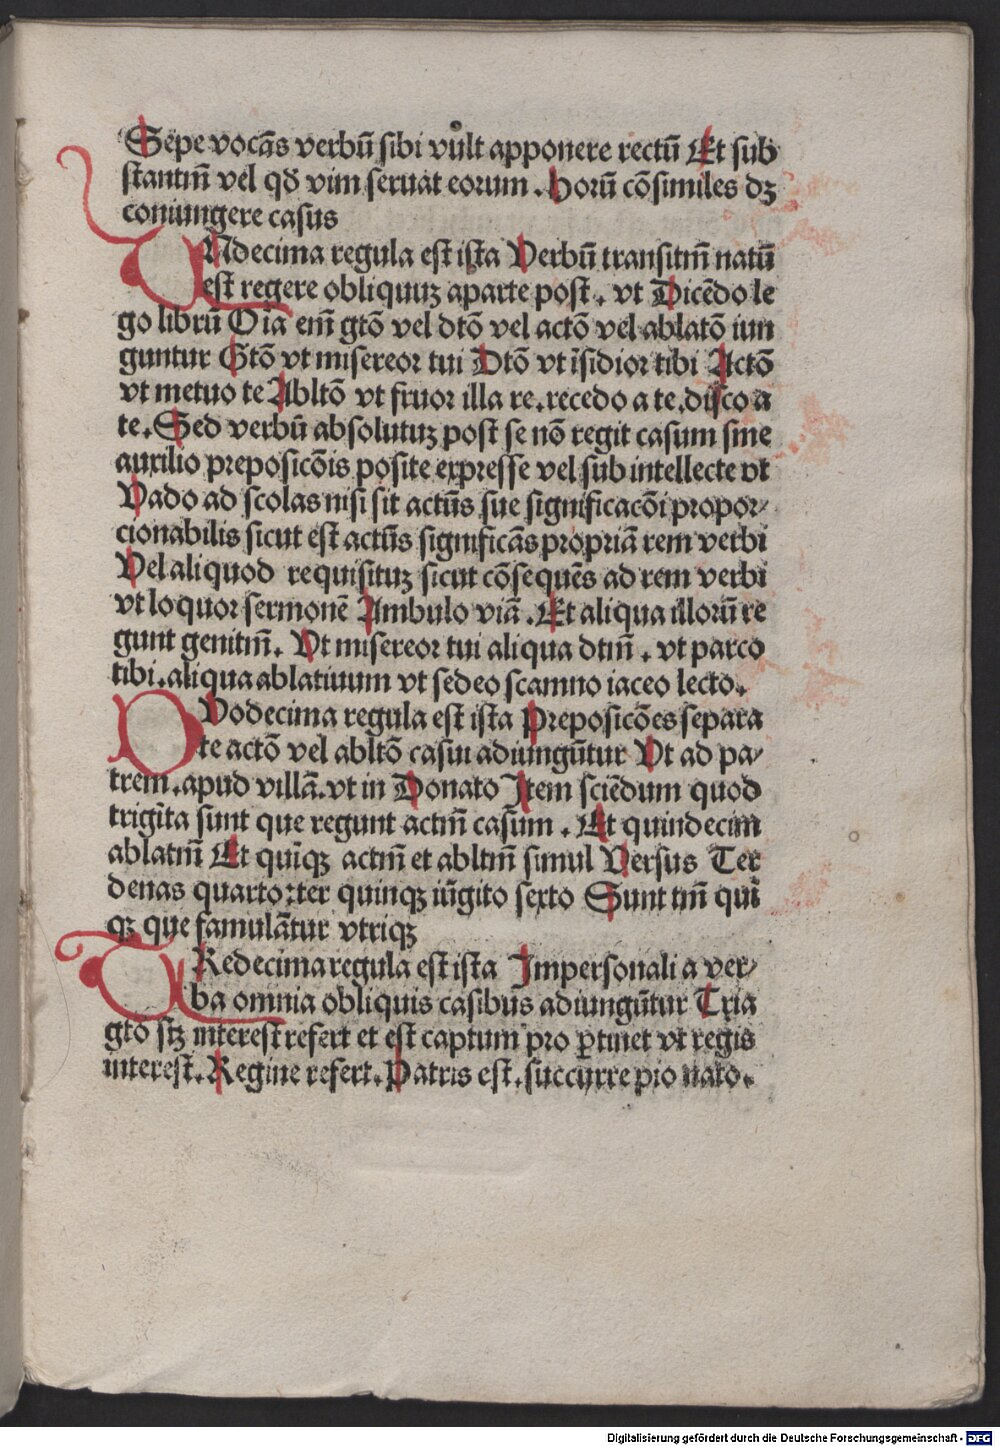 Sepe vocãs verbũ ſibi vůlt apponere rectũ Et ſub
ſtantiũ vel qđ vim ſeruat eorum. Horũ cõſimiles dꝫ
coniungere caſus
UNdecima regula eſt iſta Verbũ tranſitiũ natũ
eſt regere obliquuꝫ aparte poſt. vt Dicẽdo le
go librũ Oĩa eni̅ gtõ vel dtõ vel actõ vel ablatõ iun
guntur Gtõ vt miſereor tui Dtõ vt ĩſidior tibi Actõ
vt metuo te Abltõ vt fruor illa re. recedo a te. diſco a
te. Sed verbũ abſolutuꝫ poſt ſe nõ regit caſum ſine
auxilio prepoſicõis poſite expreſſe vel ſub intellecte vt
Vado ad ſcolas niſi ſit actũs ſue ſignificacõi propor⸗
cionabilis ſicut eſt actũs ſignificãs propriã rem verbi
Vel aliquod requiſituꝫ ſicut cõſequẽs ad rem verbi
vt loquor ſermonẽ Ambulo viã. Et aliqua illorũ re
gunt genitiũ. Vt miſereor tui aliqua dtiũ. vt parco
tibi. aliqua ablatiuum vt ſedeo ſcamno iaceo lecto.
DVodecima regula eſt iſta Prepoſicões ſepara
te actõ vel abltõ caſui adiungũtur Vt ad pa⸗
trem. apud villã. vt in Donato Item ſciẽdum quod
trigĩta ſunt que regunt actiũ caſum. Et quindecim
ablatiũ Et quĩqꝫ actiũ et abltiũ ſimul Verſus Ter
denas quarto: ter quinqꝫ iũgito ſexto Sunt tm̃ quĩ
qꝫ que famulãtur vtriqꝫ
TRedecima regula eſt iſta Imperſonali a ver⸗
ba omnia obliquis caſibus adiungũtur Tria
gtõ ſiꝫ intereſt refert et eſt captum pro ꝑtinet vt regis
intereſt. Regine refert. Patris eſt. ſuccurre pio nato.
Digitalisierung gefördert durch die Deutsche Forschungsgemeinschaft - DFG